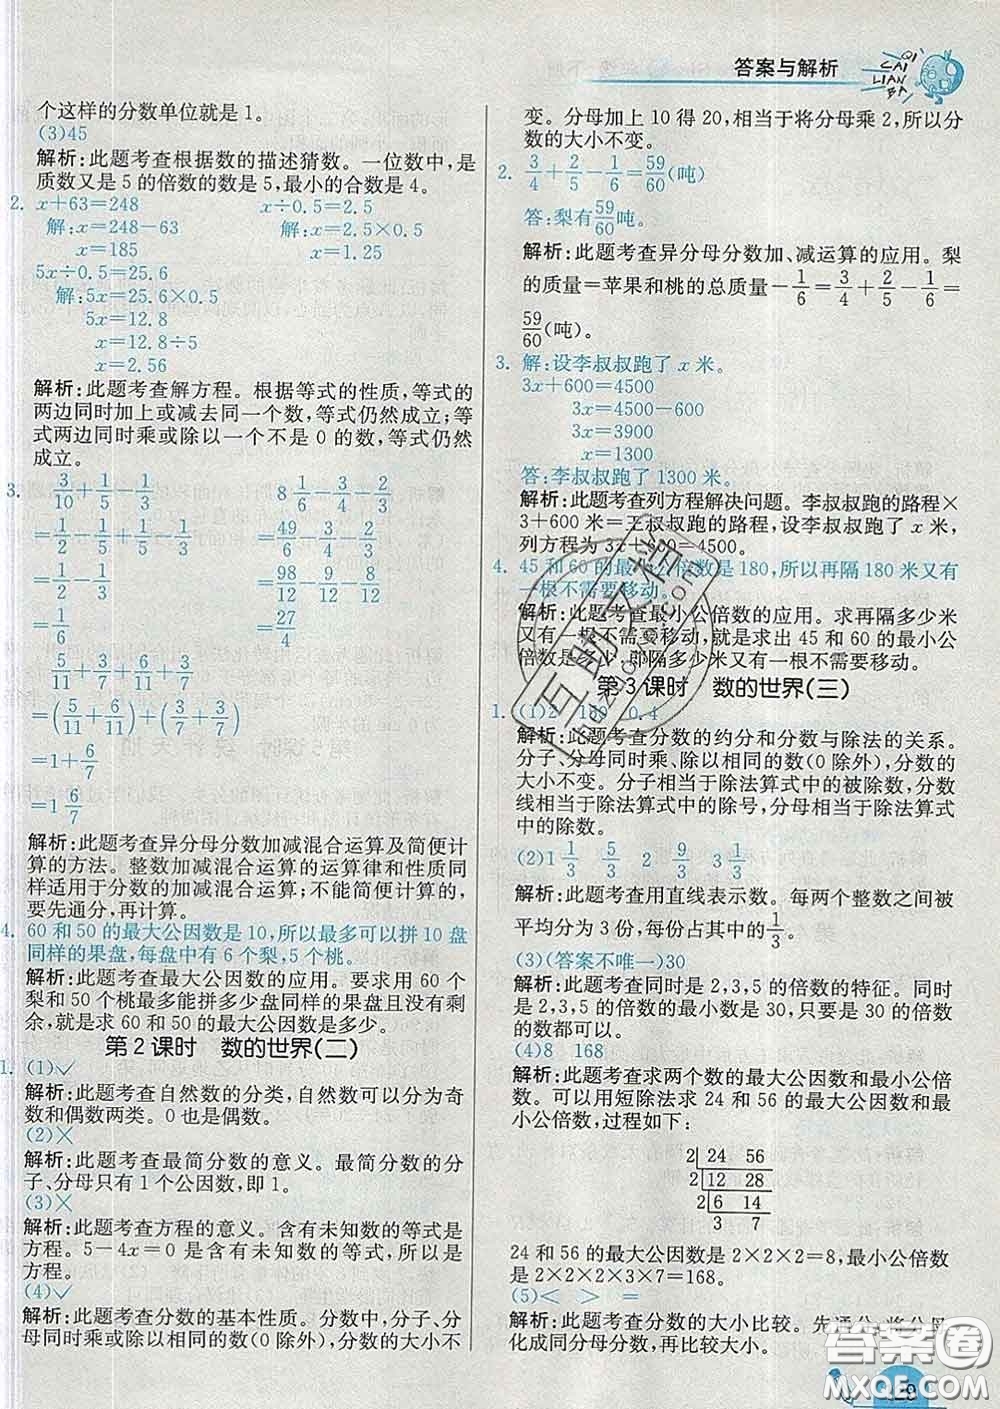 答案与解析
QI CAI LIAN BA
个这样的分数单位就是1。
(3)45
解析:此题考查根据数的描述猜数。一位数中,是
质数又是5的倍数的数是5,最小的合数是4。
2. x+63=248 x÷0.5=2.5
解:x=248-63 解:x=2.5×0.5
x=185 x=1.25
5x÷0.5=25.6
解:5x=25.6×0.5
5x=12.8
x=12.8÷5
x=2.56
解析:此题考查解方程。根据等式的性质,等式的
两边同时加上或减去同一个数,等式仍然成立;等
式两边同时乘或除以一个不是0的数,等式仍然
成立。
3. 3/10+1/5-1/3 8 1/6-1/3-3/4
=1/2-1/5+1/5-1/3 =49/6-2/6-3/4
=1/2-1/3 =98/12-4/12-9/12
=1/6 =27/4
5/11+3/7+6/11+3/7
=(5/11+6/11)+(3/7+3/7)
=1+6/7
=1 6/7
解析:此题考查异分母分数加减混合运算及简便计
算的方法。整数加减混合运算的运算律和性质同
样适用于分数的加减混合运算;不能简便计算的,
要先通分,再计算。
4. 60和50的最大公因数是10,所以最多可以拼10盘
同样的果盘,每盘中有6个梨,5个桃。
解析:此题考查最大公因数的应用。要求用60个
梨和50个桃最多能拼多少盘同样的果盘且没有剩
余,就是求60和50的最大公因数是多少。
第2课时 数的世界(二)
1. (1)✓
解析:此题考查自然数的分类,自然数可以分为奇
数和偶数两类。0也是偶数。
(2)×
解析:此题考查最简分数的意义。最简分数的分
子、分母只有1个公因数,即1。
(3)×
解析:此题考查方程的意义。含有未知数的等式是
方程。5-4x=0是含有未知数的等式,所以是
方程。
(4)✓
解析:此题考查分数的基本性质。分数中,分子、分
母同时乘或除以相同的数(0除外),分数的大小不
变。分母加上10得20,相当于将分母乘2,所以分
数的大小不变。
2. 3/4+2/5-1/6=59/60(吨)
答:梨有59/60吨。
解析:此题考查异分母分数加、减运算的应用。梨
的质量=苹果和桃的总质量-1/6=3/4+2/5-1/6=
59/60(吨)。
3. 解:设李叔叔跑了x米。
3x+600=4500
3x=4500-600
3x=3900
x=1300
答:李叔叔跑了1300米。
解析:此题考查列方程解决问题。李叔叔跑的路程×
3+600米=王叔叔跑的路程,设李叔叔跑了x米,
列方程为3x+600=4500。
4. 45和60的最小公倍数是180,所以再隔180米又有
一根不需要移动。
解析:此题考查最小公倍数的应用。求再隔多少米
又有一根不需要移动,就是求出45和60的最小公
倍数是多少,即隔多少米又有一根不需要移动。
第3课时 数的世界(三)
1. (1)2 0.4
解析:此题考查分数的约分和分数与除法的关系。
分子、分母同时乘、除以相同的数(0除外),分数
的大小不变。分子相当于除法算式中的被除数,分数
线相当于除法算式中的除号,分母相当于除法算式
中的除数。
(2)1 1/3 5/3 2 9/3 3 1/3
解析:此题考查用直线表示数。每两个整数之间被
平均分为3份,每份占其中的1/3。
(3)(答案不唯一)30
解析:此题考查同时是2,3,5的倍数的特征。同时
是2,3,5的倍数的最小数是30,只要是30的倍数
的数都可以。
(4)8 168
解析:此题考查求两个数的最大公因数和最小公倍
数。可以用短除法求24和56的最大公因数和最
小公倍数,过程如下:
2 24 56
2 12 28
2 6 14
3 7
24和56的最大公因数是2×2×2=8,最小公倍数
是2×2×2×3×7=168。
(5)< > =
解析:此题考查分数的大小比较。先通分,将分母
化成同分母分数,再比较大小。
互助文档
huzhuwd.com
答案圈
MXQE.COM